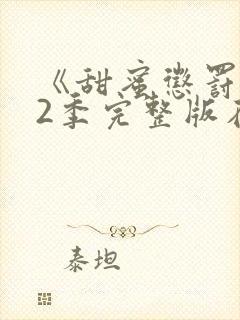 《甜蜜惩罚
2季完整版在
泰坦